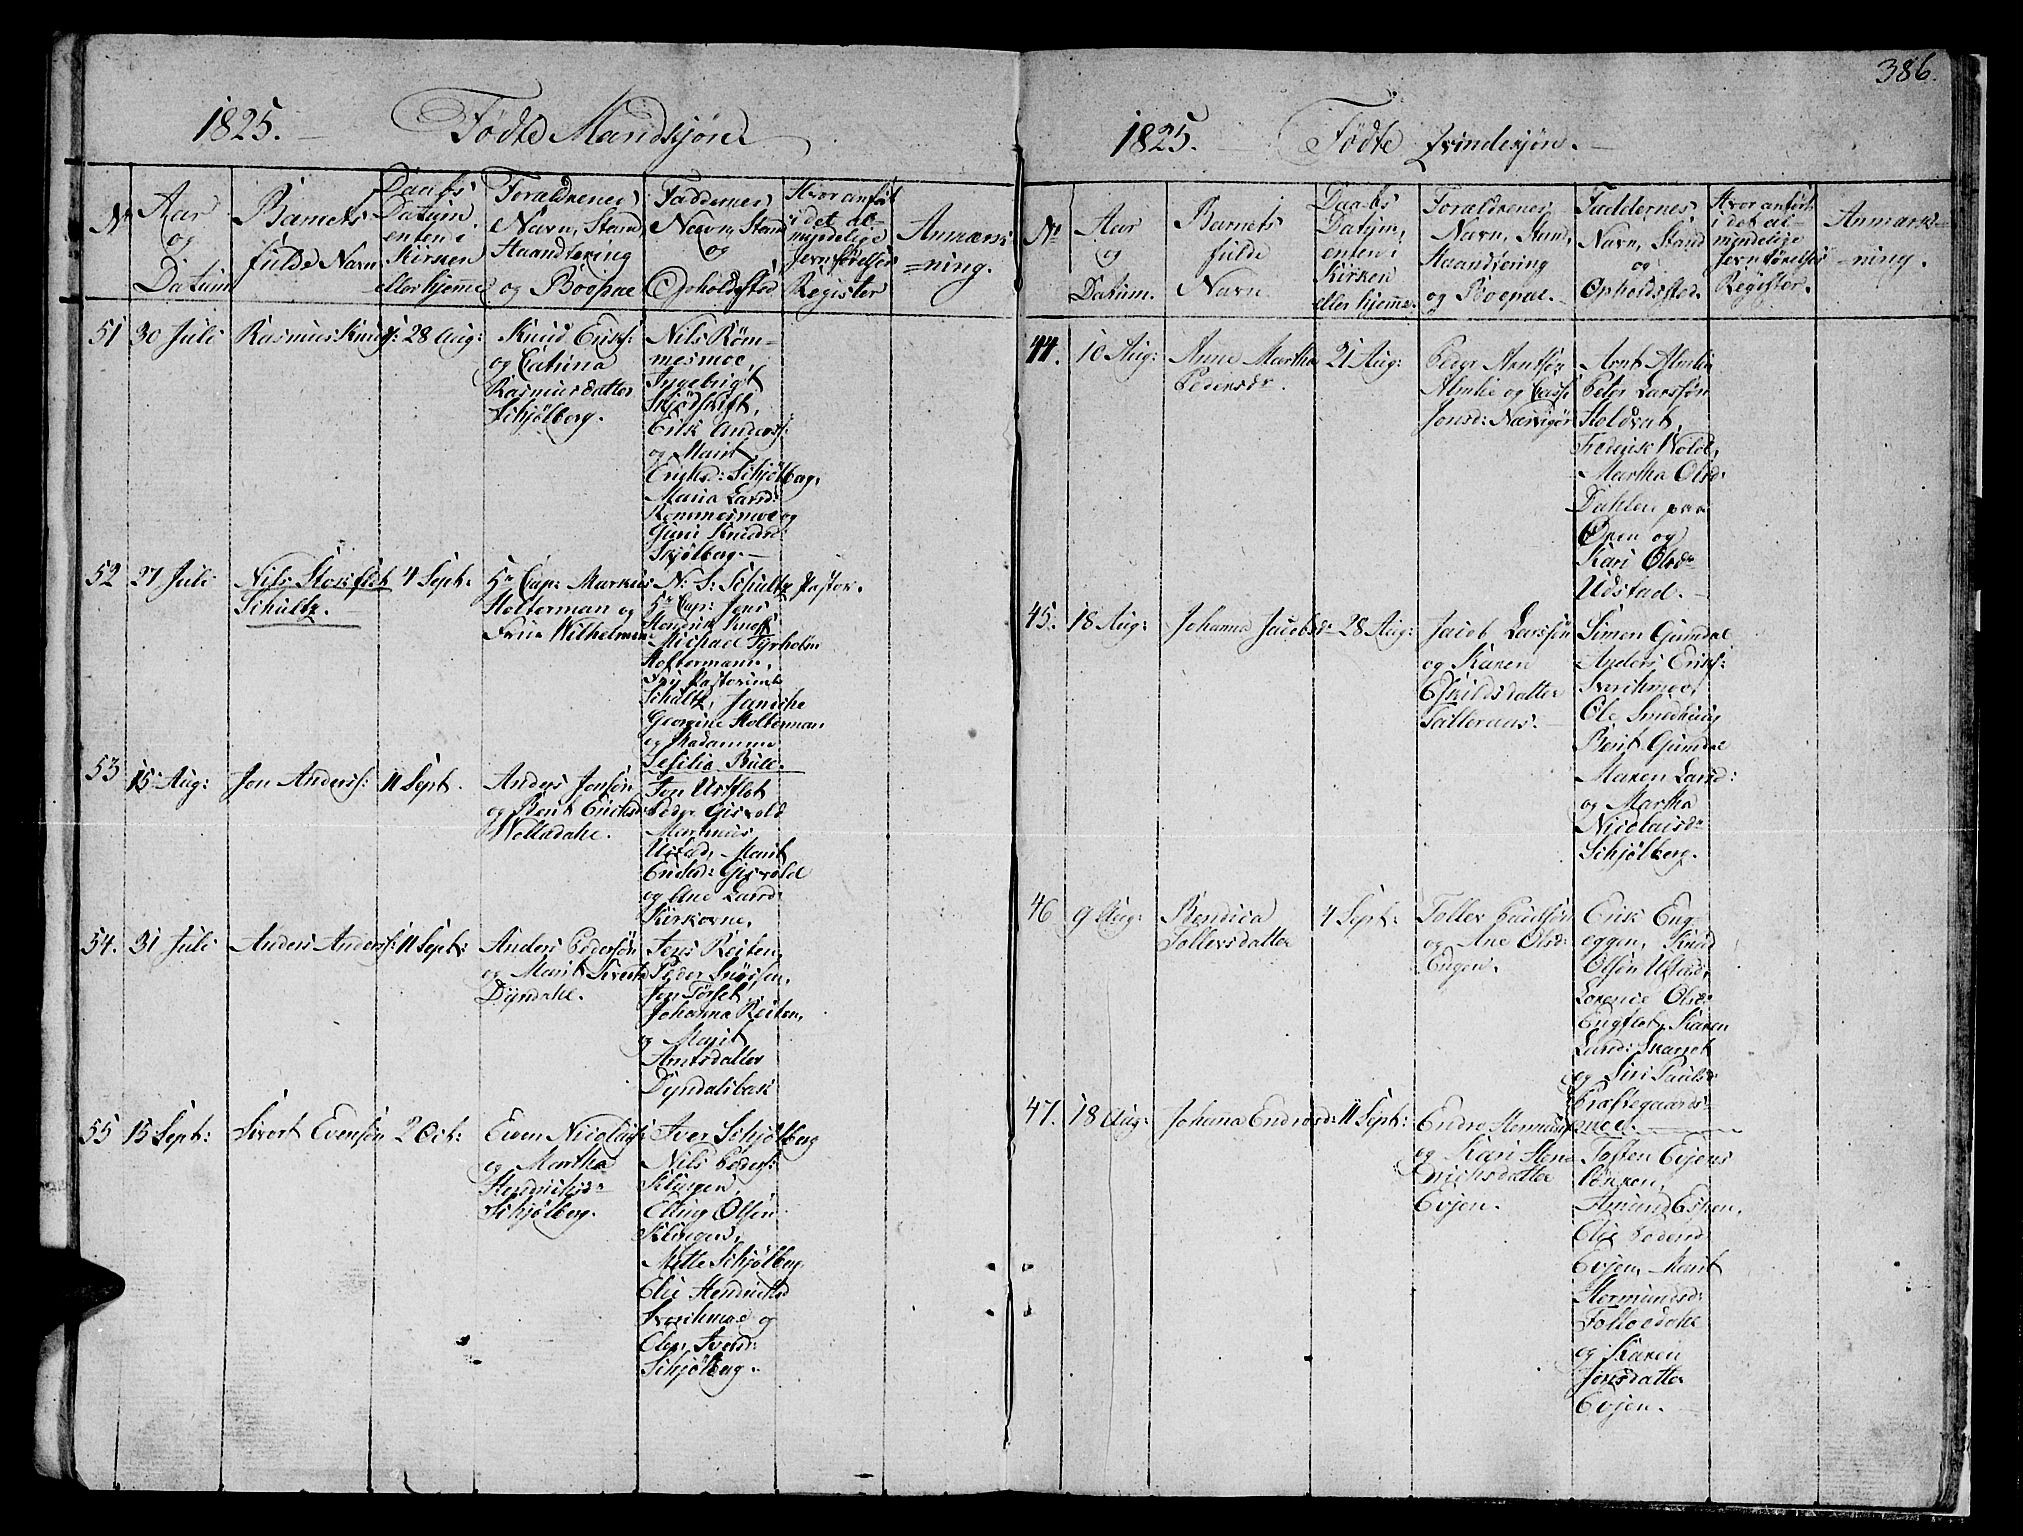 386.
1825. Fødte Mandkjøn
N:
Aar
og
Datum
Barnets
fulde Navn
Daabs
Datum
enten i
Kirken
eller hjemme
Forældrenes
Navn, Stand
Haandtering
og Boepæl
Faddernes
Navn, Stand
og
Opholdssted
Hvor anført
i det al-
myndelige
Jevnførelses
Register
Anmærk
=ning.
51 30 Juli Rasmus Knuds: 28 Aug:
Knud Eriks:
og Catrina
Rasmusdatter
Schjølberg.
Nils Röm-
mesmoe,
Ingebrigt
Skjødskift,
Erik Anders:
og Marit
Ericksd: Schjølberg,
Maria Larsd:
Rommesmoe og
Guri Knudsd:
Skjølberg.
52 27 Juli
Nils Stokflet
Schultz.
4 Sept:
Sr Cap: Markus
Holterman og
Frue Wilhelmine
N: S: Schultz Pastor.
Sr Cap: Jens
Hendrik Knoff
Michael Tyrholm
Holtermann,
Schultz, Janiche
Georgine Holterman
og Madamme
Sesilia Bull.
53 15 Aug: Jon Anders: 11 Sept.
Anders Jonsøn
og Berit Ericksd:
Wolledahl.
Jon Ustflot
Peder Gisvold
Martinus
Ustad, Marit
Ericksd: Gisvold
og Ane Larsd:
Kirkovne.
54. 31 Juli Anders Anders: 11 Sept:
Anders Pedersøn
og Marit
Dyndahl.
Jens Reiten,
Jon Torset,
Johanna Reiten,
og Marit
Arntsdatter
Dyndalsbak
55 15 Sept: Sivort Evensøn 2 Oct:
Even Nicolays:
og Martha
Hendrichsdr
Schjølberg.
Iver Schjølberg
Nils Peders:
Klingen,
Elling Olsen
Klingen,
Mette Schjølberg,
Elie Hendrichsd
Svorkmoe og
Elen Iversd:
Schjølberg.
1825. Fødte Qvindekjøn.
No
Aar
og
Datum.
Barnets
fulde
Navn
Daabs
Datum,
enten i
Kirken
eller hjemme
Forældrenes
Navn, Stand,
Haandtering
og Boepæl.
Faddernes
Navn, Stand
og
Opholdssted.
Hvor anført
i det al-
mindelige
Jevnførelses
Register.
Anmærk=
=ning.
44. 10 Aug:
Anne Martha
Pedersdr.
21 Aug:
Peder Arntsøn
Almlie og
Jonsd:
Arnt Almlie
Peter Larssøn
Holdvat,
Frederik Wold,
Martha Olsd:
Dahlen paa
Øxen og
Kari Olsdr
Udstad.
45. 18 Aug: Johanna Jacobsdr 28 Aug:
Jacob Larssøn
og Karen
Eskildsdatter
Talleraas.
Simon Gumdal
Anders Eriks:
Svorkmoe,
Ole Smedhaug
Berit Gumdal
Maren Larsd:
og Martha
Nicolaisdr
Schjølberg.
46 9 Aug:
Bendica
Tollersdatter
4 Sept:
Toller Poulsøn
og Ane Olsd:
Engen.
Erik Eng-
eggen, Knud
Olsøn Ustad,
Lorence Olsdr
Engflot, Karen
Larsd: Skarset
og Siri Paulsd
Præstegaards-
moe.
47. 18 Aug: Johana Endresd: 11 Sept:
Endre Hermunds:
og Kari Hen-
drichsdatter
Evjen.
Tosten Evjens
Lönken,
Amund Estien,
Elie Pedersd
Evjen, Marit
Hermundsd:
Follosdahl
og Karen
Jonsdatter
Evjen.